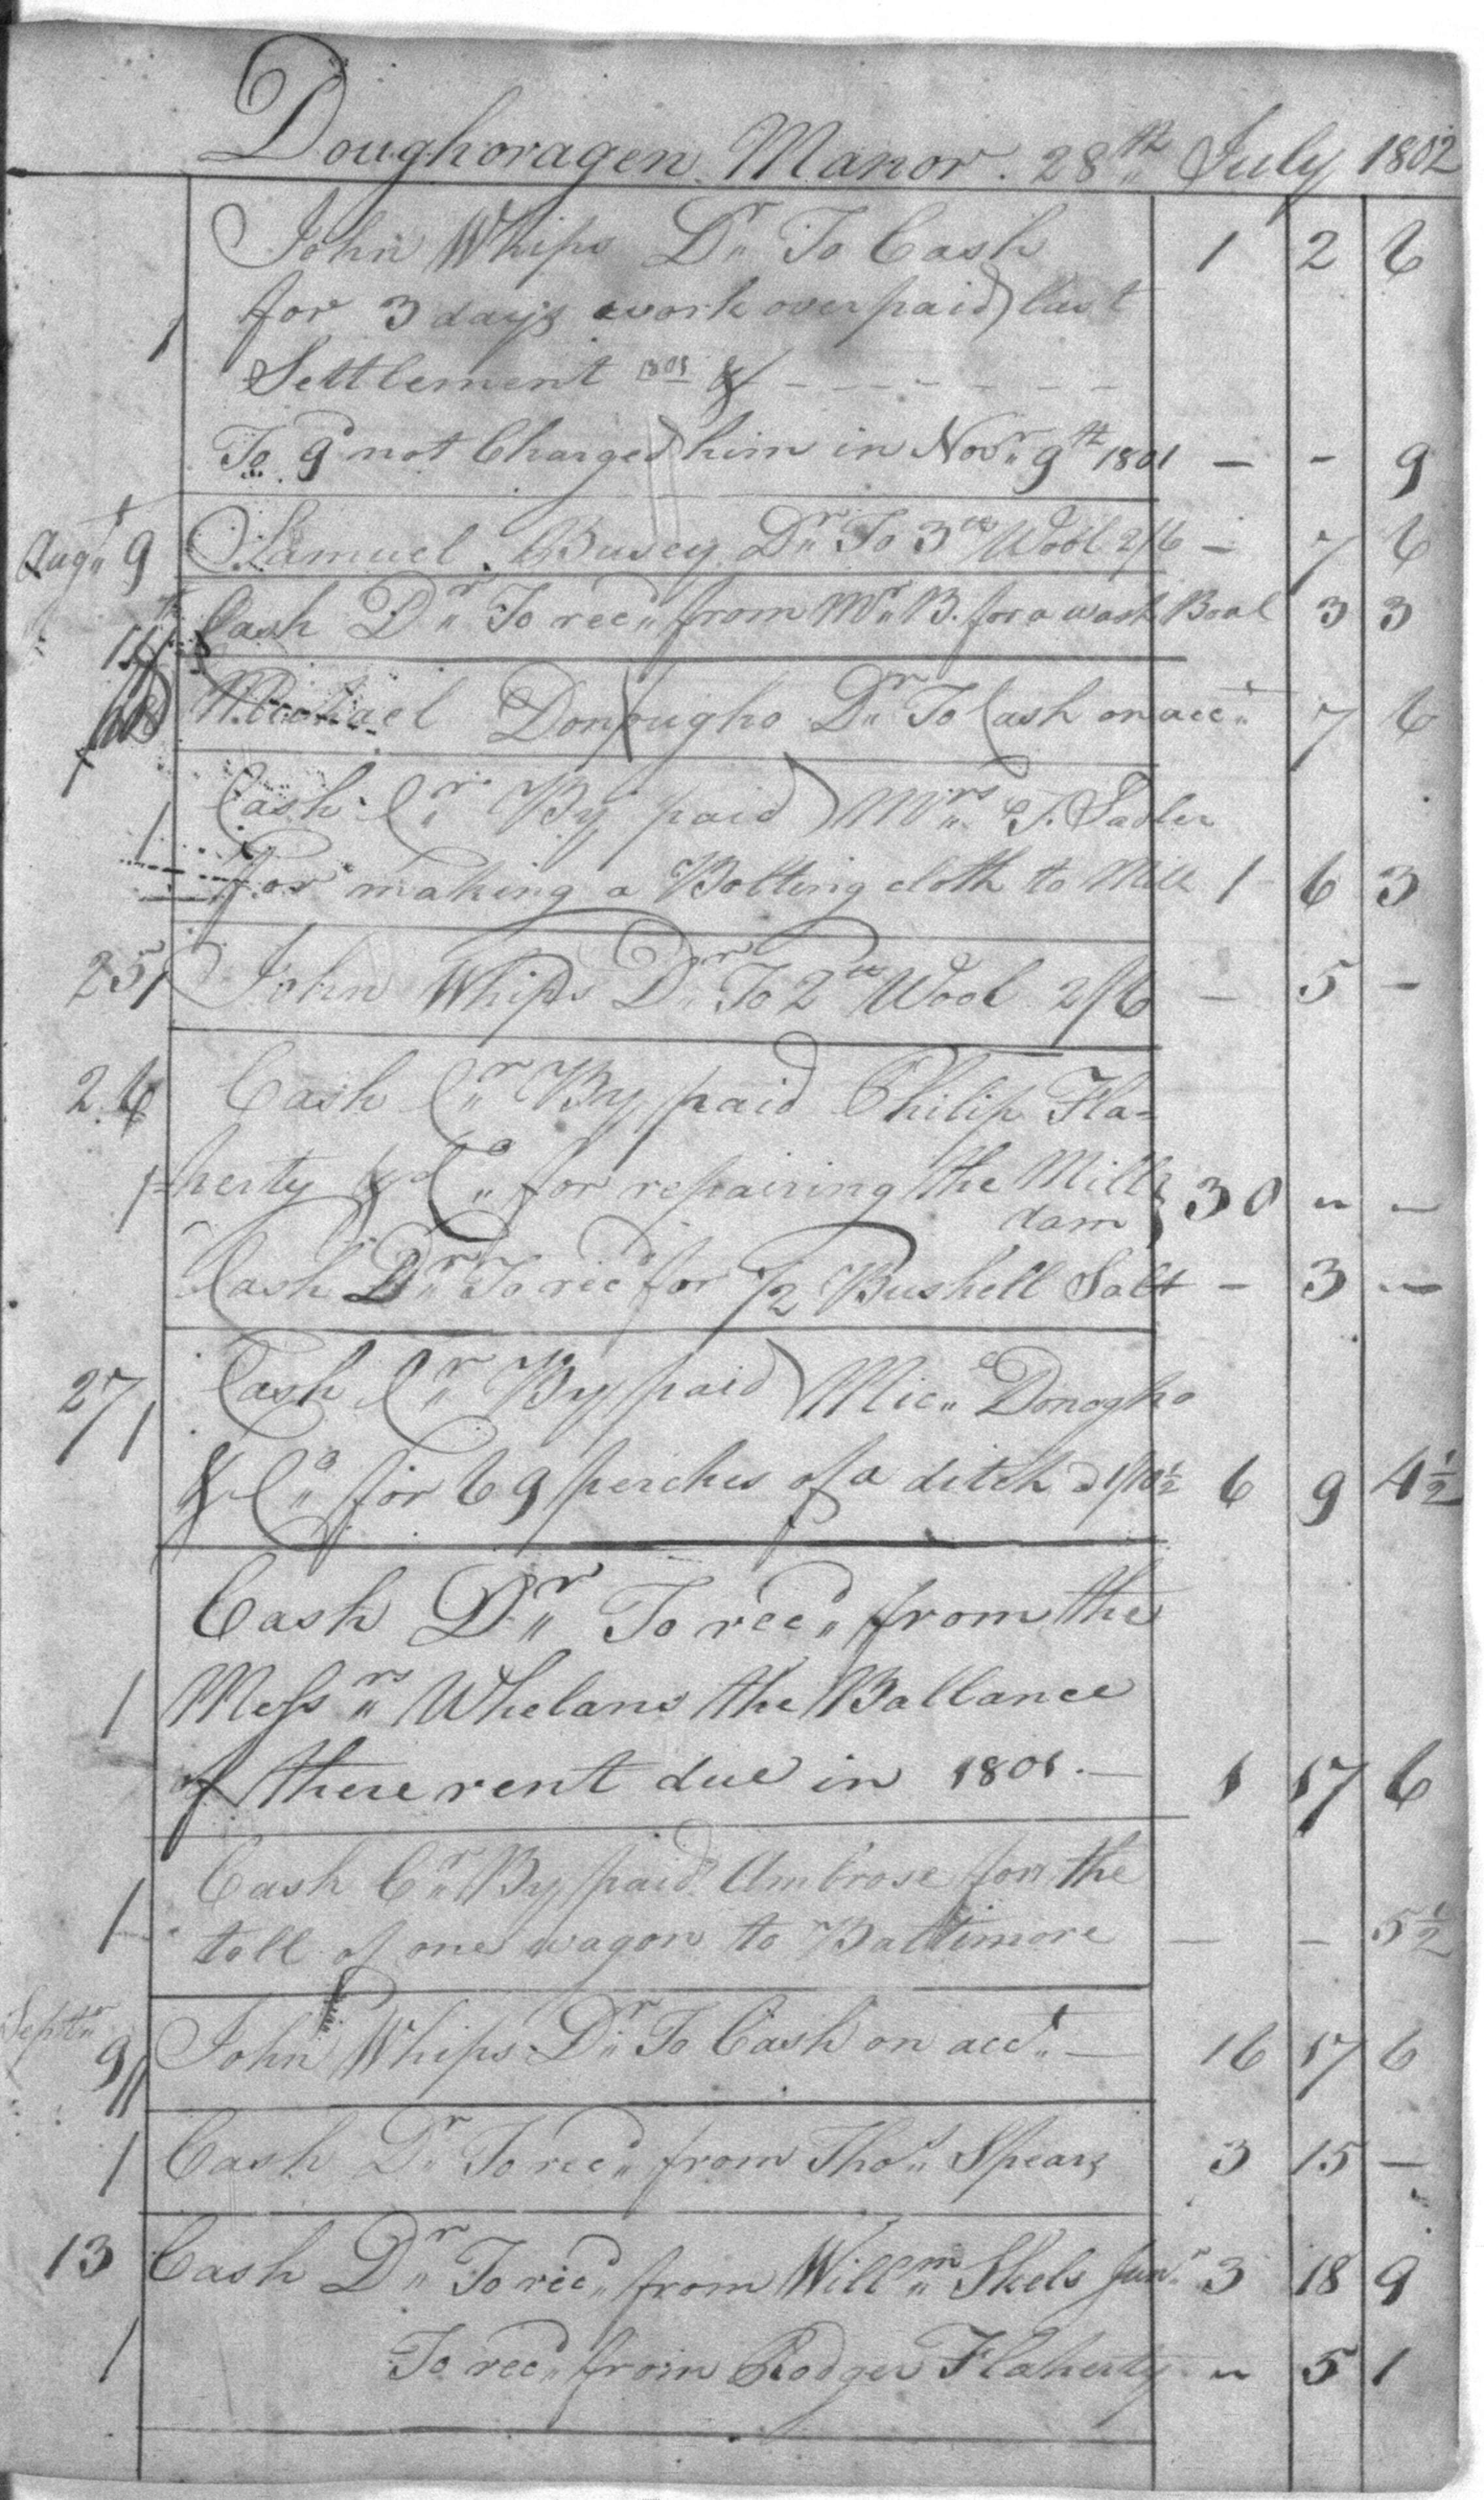 Doughoragen Manor. 28th July 1802
John Whips Dr To Cash 1 2 6
for 3 days work over paid last
1 Settlement 1801 & - - - - - - -
To 9d not Charged him in Novr 9th 1801 — - 9
Augt 9 Samuel Busey Dr To 3 lb Wool 2/6 - 7 6
Cash Dr To recd from Mr B. for a wash Boal 3 3
Michael Donougho Dr To Cash on acct 7 6
Cash Cr By paid Mrs T. Sadler
1 For making a Bolting cloth to Mill 1 6 3
25/ John Whips Dr To 2 lb Wool 2/6 - 5 -
26 Cash Cr By paid Philip Fla=
1 =herty & Co for repairing the Mill
dam } 30 " —
Cash Dr To recd for 1/2 Bushell Salt - 3 —
27/1 Cash Cr By paid Micl Donogho
& Co for 69 perches of a ditch @ 1/10½ 6 9 4½
Cash Dr To recd from the
1 Messrs Whelans the Ballance
of there rent due in 1801. — 1 17 6
Cash Cr By paid Ambrose for the
1 toll of one wagon to Baltimore — - 5½
Septr 9// John Whips Dr To Cash on acct — 16 17 6
1 Cash Dr To recd from Thos Spears 3 15 —
13 Cash Dr To recd from Willm Shels Junr 3 18 9
1 To recd from Rodger Flaherty " 5 1